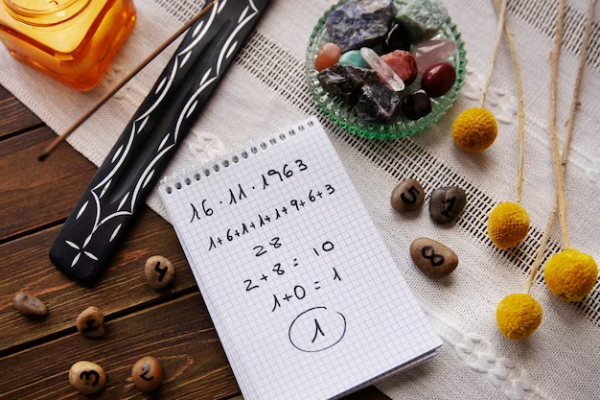 16 · 11 · 1963
1+6+1+1+1+9+6+3
28
2+8 = 10
1+0 = 1
1
5
1
8
4
2
3